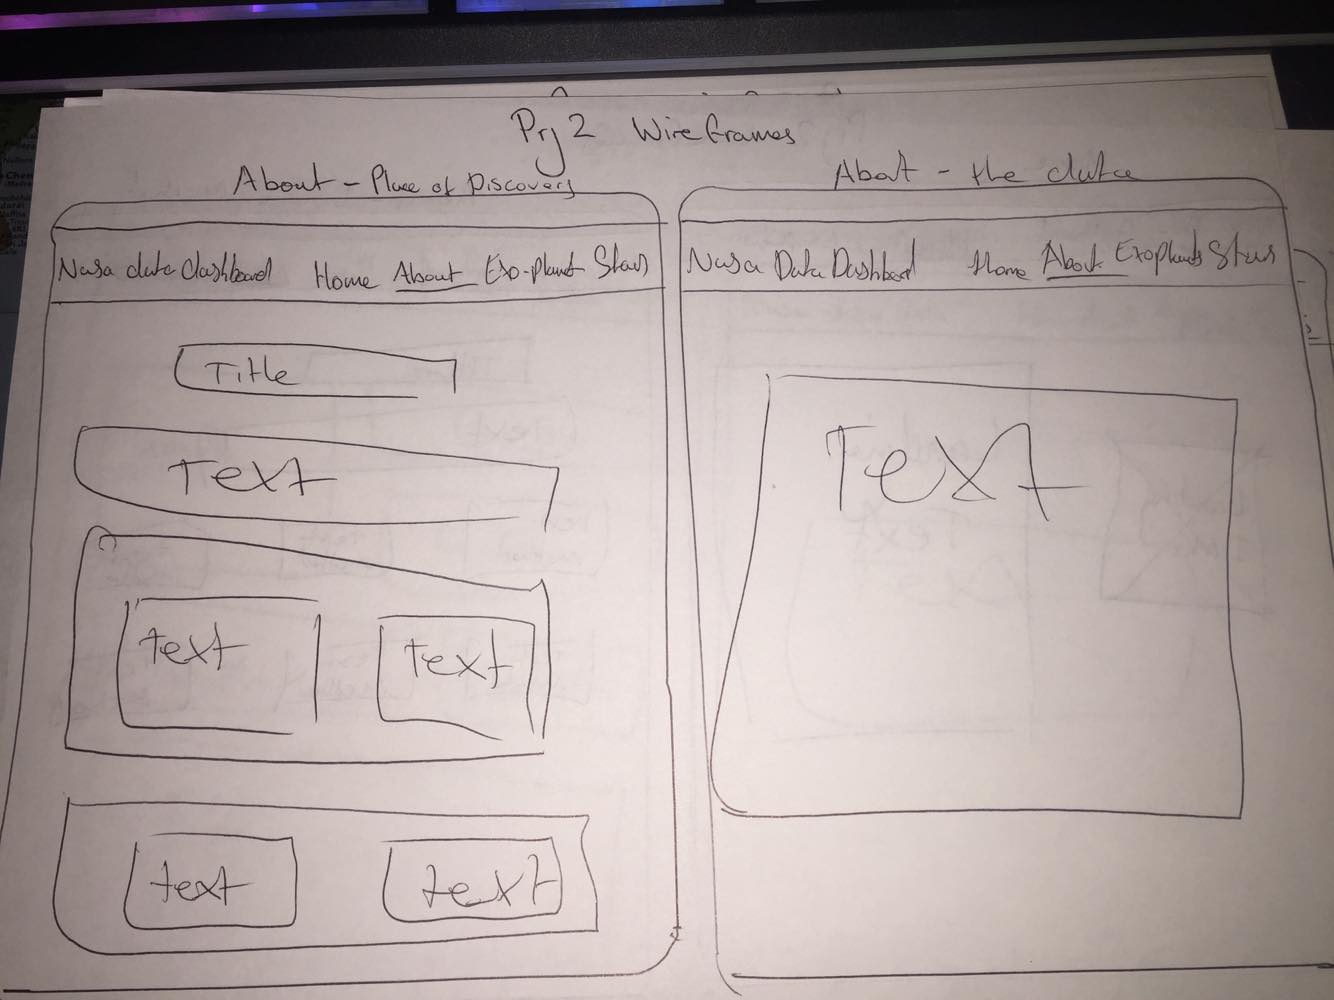 Prj 2 Wireframes
About - Place of Discovery
Nasa data dashboard Home About Exo-planet Stars
Title
Text
text Text
text text
About - the data
Nasa Data Dashboard Home About Exoplanets Stars
Text